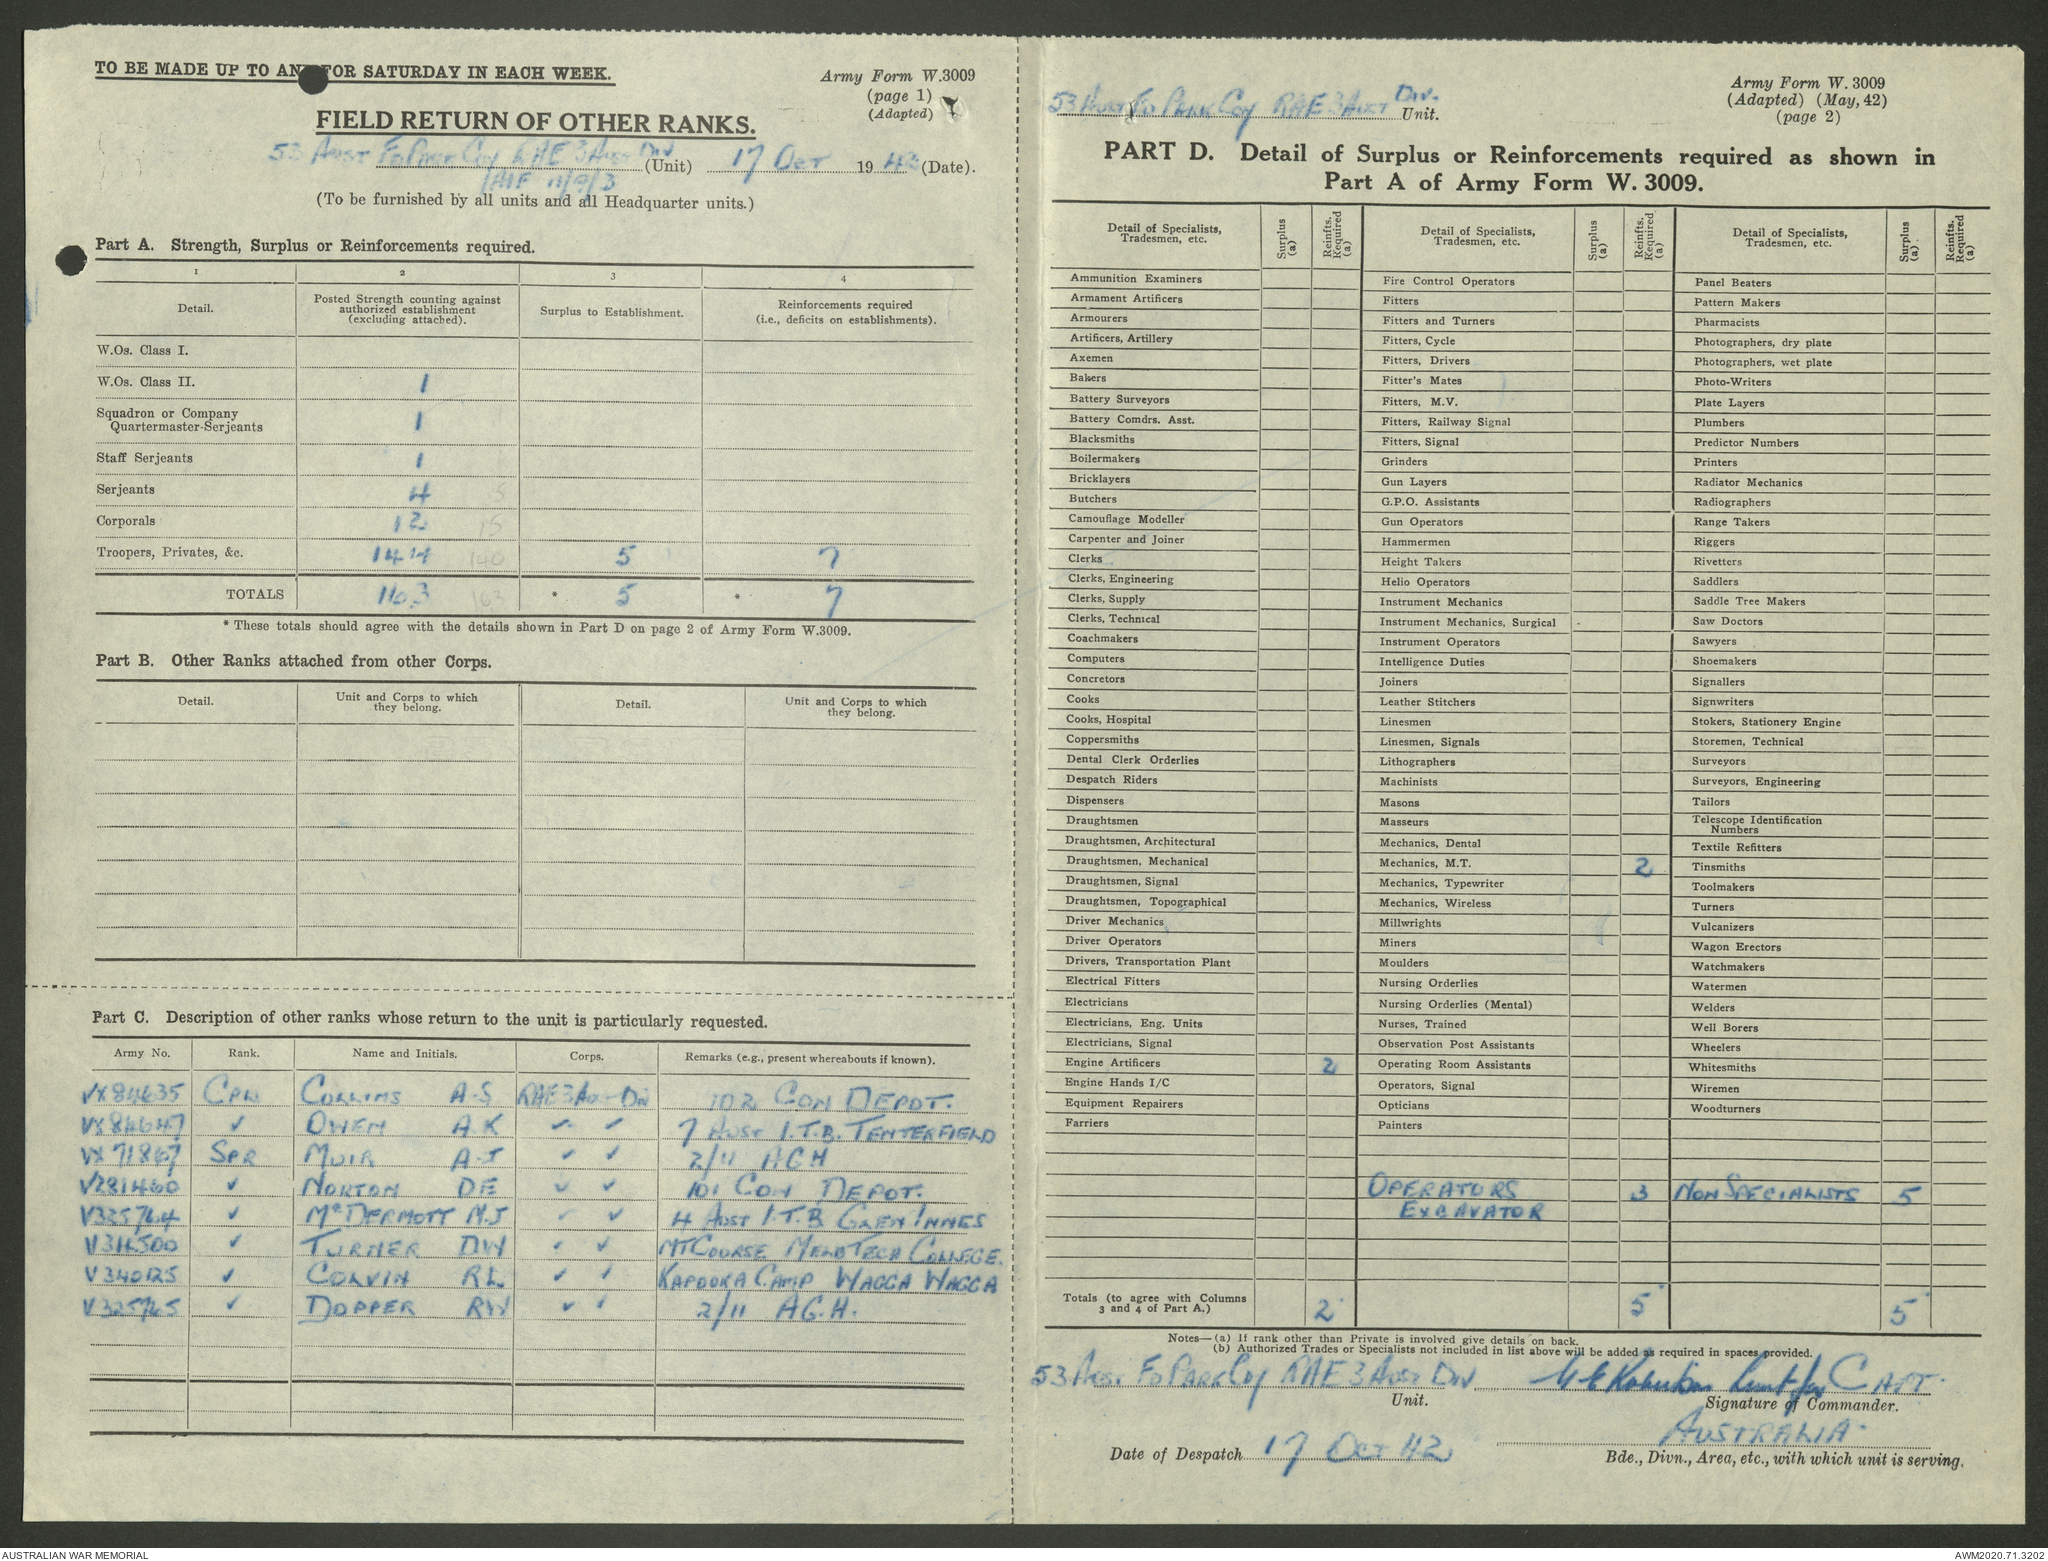 TO BE MADE UP TO AND FOR SATURDAY IN EACH WEEK.
Army Form W.3009
(page 1)
(Adapted)
FIELD RETURN OF OTHER RANKS.
53 Aust Fd Park Coy RAE 3 Aust Div (Unit) 17 Oct 1943 (Date).
(To be furnished by all units and all Headquarter units.)
Part A. Strength, Surplus or Reinforcements required.
1 2 3 4
Detail. Posted Strength counting against authorized establishment (excluding attached). Surplus to Establishment. Reinforcements required (i.e., deficits on establishments).
W.Os. Class I.
W.Os. Class II. 1
Squadron or Company Quartermaster-Serjeants 1
Staff Serjeants 1
Serjeants 4 5
Corporals 12 15
Troopers, Privates, &c. 144 140 5 7
TOTALS 163 163 * 5 * 7
* These totals should agree with the details shown in Part D on page 2 of Army Form W.3009.
Part B. Other Ranks attached from other Corps.
Detail. Unit and Corps to which they belong. Detail. Unit and Corps to which they belong.
Part C. Description of other ranks whose return to the unit is particularly requested.
Army No. Rank. Name and Initials. Corps. Remarks (e.g., present whereabouts if known).
VX84635 Cpl Collins A.S RAE 3 Aust Div 102 Con Depot.
VX84647 ✓ Owen A.K ✓ ✓ 7 Aust I.T.B. Tenterfield
VX71867 Spr Muir A.J ✓ ✓ 2/11 AGH
V281460 ✓ Norton DE ✓ ✓ 101 Con Depot.
V325764 ✓ McDermott M.J ✓ ✓ 4 Aust I.T.B Glen Innes
V314500 ✓ Turner DW ✓ ✓ MT Course Melb Tech College.
V340125 ✓ Colvin RL ✓ ✓ Kapooka Camp Wagga Wagga
V325765 ✓ Dopper RW ✓ ✓ 2/11 A.G.H.
53 Aust Fd Park Coy RAE 3 Aust Div. Unit.
Army Form W. 3009
(Adapted) (May, 42)
(page 2)
PART D. Detail of Surplus or Reinforcements required as shown in
Part A of Army Form W. 3009.
Detail of Specialists, Tradesmen, etc. Surplus (a) Reinfts. Required (a) Detail of Specialists, Tradesmen, etc. Surplus (a) Reinfts. Required (a) Detail of Specialists, Tradesmen, etc. Surplus (a) Reinfts. Required (a)
Ammunition Examiners Fire Control Operators Panel Beaters
Armament Artificers Fitters Pattern Makers
Armourers Fitters and Turners Pharmacists
Artificers, Artillery Fitters, Cycle Photographers, dry plate
Axemen Fitters, Drivers Photographers, wet plate
Bakers Fitter's Mates Photo-Writers
Battery Surveyors Fitters, M.V. Plate Layers
Battery Comdrs. Asst. Fitters, Railway Signal Plumbers
Blacksmiths Fitters, Signal Predictor Numbers
Boilermakers Grinders Printers
Bricklayers Gun Layers Radiator Mechanics
Butchers G.P.O. Assistants Radiographers
Camouflage Modeller Gun Operators Range Takers
Carpenter and Joiner Hammermen Riggers
Clerks Height Takers Rivetters
Clerks, Engineering Helio Operators Saddlers
Clerks, Supply Instrument Mechanics Saddle Tree Makers
Clerks, Technical Instrument Mechanics, Surgical Saw Doctors
Coachmakers Instrument Operators Sawyers
Computers Intelligence Duties Shoemakers
Concretors Joiners Signallers
Cooks Leather Stitchers Signwriters
Cooks, Hospital Linesmen Stokers, Stationery Engine
Coppersmiths Linesmen, Signals Storemen, Technical
Dental Clerk Orderlies Lithographers Surveyors
Despatch Riders Machinists Surveyors, Engineering
Dispensers Masons Tailors
Draughtsmen Masseurs Telescope Identification Numbers
Draughtsmen, Architectural Mechanics, Dental Textile Refitters
Draughtsmen, Mechanical Mechanics, M.T. 2 Tinsmiths
Draughtsmen, Signal Mechanics, Typewriter Toolmakers
Draughtsmen, Topographical Mechanics, Wireless Turners
Driver Mechanics Millwrights Vulcanizers
Driver Operators Miners Wagon Erectors
Drivers, Transportation Plant Moulders Watchmakers
Electrical Fitters Nursing Orderlies Watermen
Electricians Nursing Orderlies (Mental) Welders
Electricians, Eng. Units Nurses, Trained Well Borers
Electricians, Signal Observation Post Assistants Wheelers
Engine Artificers 2 Operating Room Assistants Whitesmiths
Engine Hands I/C Operators, Signal Wiremen
Equipment Repairers Opticians Woodturners
Farriers Painters
Operators Excavator 3 Non Specialists 5
Totals (to agree with Columns 3 and 4 of Part A.) 2 5 5
Notes—(a) If rank other than Private is involved give details on back.
(b) Authorized Trades or Specialists not included in list above will be added as required in spaces provided.
53 Aust Fd Park Coy RAE 3 Aust Div Capt.
Unit. Signature of Commander.
Australia.
Date of Despatch 17 Oct 42 Bde., Divn., Area, etc., with which unit is serving.
AUSTRALIAN WAR MEMORIAL
AWM2020.71.3202